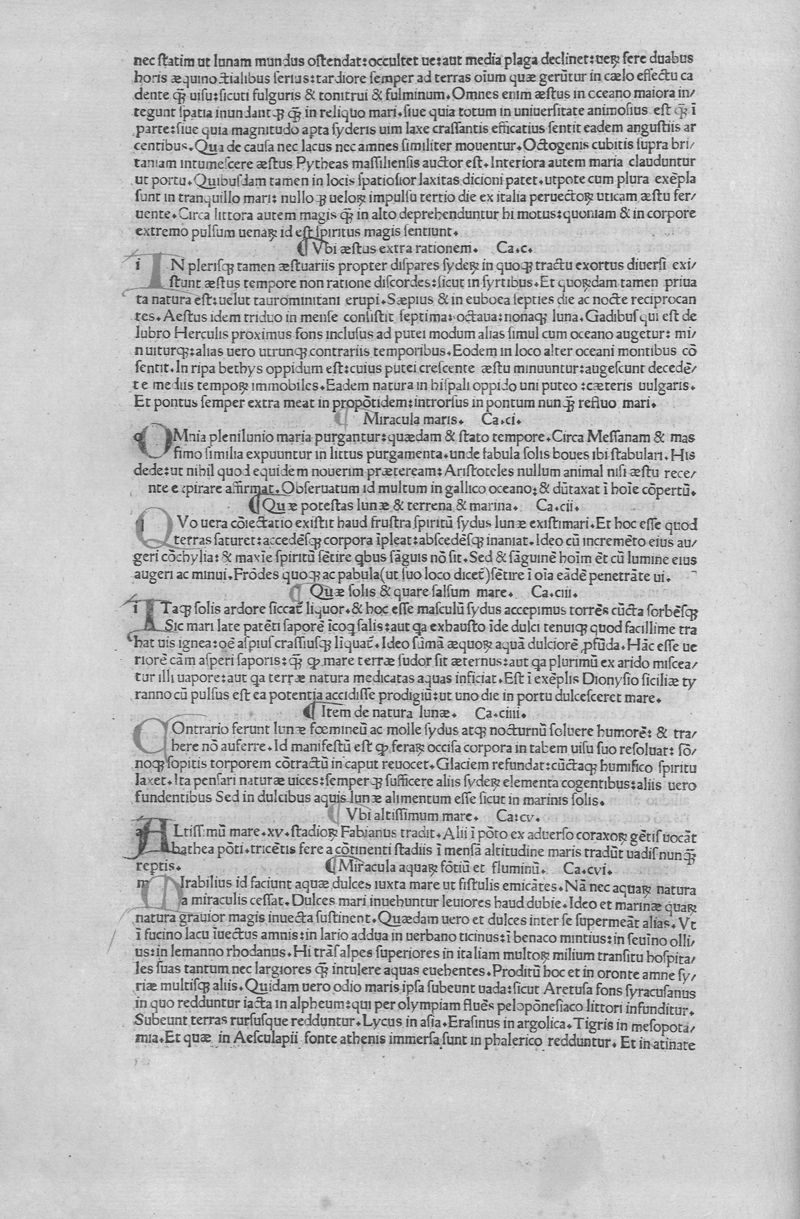 nec ſtatim ut lunam mundus oſtendat:occultet ue:aut media plaga declinet:ueꝝ fere duabus
horis æquinoctialibus ſerius:tardiore ſemper ad terras oīum quæ gerūtur in cælo effectu ca
dente ꝙ̃ uiſu:ſicuti fulguris & tonitrui & fulminum. Omnes enim æſtus in oceano maiora in/
tegunt ſpatia inundantꝗ ꝙ̃ in reliquo mari.ſiue quia totum in uniuerſitate animoſius eſt ꝙ̃ ī
parte:ſiue quia magnitudo apta ſyderis uim laxe craſſantis efficatius ſentit eadem anguſtiis ar
centibus. Qua de cauſa nec lacus nec amnes ſimiliter mouentur. Octogenis cubitis ſupra bri/
taniam intumeſcere æſtus Pytheas maſſilienſis auctor eſt. Interiora autem maria clauduntur
ut portu. Quibuſdam tamen in locis ſpatioſior laxitas dicioni patet. utpote cum plura exēpla
ſunt in tranquillo mari: nullo ꝗ ueloꝝ impulſu tertio die ex italia peruectoꝝ uticam æſtu fer/
uente. Circa littora autem magis ꝙ̃ in alto deprehenduntur hi motus:quoniam & in corpore
extremo pulſum uenaꝝ id eſt ſpiritus magis ſentiunt.
¶ Vbi æſtus extra rationem. Ca.c.
i IN pleriſꝗ tamen æſtuariis propter diſpares ſydeꝝ in quoꝗ tractu exortus diuerſi exi/
ſtunt æſtus tempore non ratione diſcordes:ſicut in ſyrtibus. Et quoꝝdam tamen priua
ta natura eſt: uelut taurominitani erupi. Sæpius & in euboea ſepties die ac nocte reciprocan
tes. Aeſtus idem triduo in menſe conſiſtit ſeptima:octaua:nonaꝗ luna. Gadibuſ qui eſt de
lubro Herculis proximus fons incluſus ad putei modum alias ſimul cum oceano augetur: mi/
nuiturꝗ:alias uero utrunꝗ contrariis temporibus. Eodem in loco alter oceani montibus cō
ſentit. In ripa bethys oppidum eſt:cuius putei creſcente æſtu minuuntur:augeſcunt decedē/
te mediis tempoꝝ immobiles. Eadem natura in hiſpali oppido uni puteo :cæteris uulgaris.
Et pontus ſemper extra meat in propōtidem:introrſus in pontum nunꝙ̃ refluo mari.
¶ Miracula maris. Ca.ci.
o OMnia plenilunio maria purgantur:quædam & ſtato tempore. Circa Meſſanam & mas
ſimo ſimilia expuuntur in littus purgamenta.unde fabula ſolis boues ibi ſtabulari. His
dede:ut nihil quod equidem nouerim præteream: Ariſtoteles nullum animal niſi æſtu rece/
nte expirare affirmat. Obſeruatum id multum in gallico oceano:& dūtaxat ī hoīe cōpertū.
¶ Quæ poteſtas lunæ & terrena & marina. Ca.cii.
q QVo uera cōiectatio exiſtit haud fruſtra ſpiritū ſydus lunæ exiſtimari. Et hoc eſſe quod
terras ſaturet:accedēſꝗ corpora īpleat:abſcedēſꝗ inaniat. Ideo cū incremēto eius au/
geri cōchylia: & maxīe ſpiritū ſētire qbus ſāguis nō ſit. Sed & ſāguinē hoīm ēt cū lumine eius
augeri ac minui. Frōdes quoꝗ ac pabula(ut ſuo loco dicet̃)ſētire ī oīa eādē penetrāte ui.
¶ Quæ ſolis & quare ſalſum mare. Ca.ciii.
i ITaꝗ ſolis ardore ſiccat̃ liquor.& hoc eſſe maſculū ſydus accepimus torrēs cūcta ſorbēſꝗ
Sic mari late patēti ſaporē īcoꝗ ſalis:aut qa exhauſto īde dulci tenuiꝗ quod facillime tra
hat uis ignea:oē aſpiuſ craſſiuſꝗ liquat̃. Ideo ſūmā æquoꝝ aquā dulciorē ꝓfūda. Hāc eſſe ue
riorē cām aſperi ſaporis:ꝙ̃ ꝙ mare terræ ſudor ſit æternus:aut qa plurimū ex arido miſcea/
tur illi uapore:aut qa terræ natura medicatas aquas inficiat. Eſt ī exēplis Dionyſio ſiciliæ ty
ranno cū pulſus eſt ea potentia accidiſſe prodigiū:ut uno die in portu dulceſceret mare.
¶ Item de natura lunæ. Ca.ciiii.
COntrario ferunt lunæ foemineū ac molle ſydus atꝗ nocturnū ſoluere humorē: & tra/
here nō auferre. Id manifeſtū eſt ꝙ feraꝝ occiſa corpora in tabem uiſu ſuo reſoluat: ſō/
noꝗ ſopitis torporem cōtractū in caput reuocet. Glaciem refundat:cūctaꝗ humifico ſpiritu
laxet. Ita penſari naturæ uices:ſemperꝗ ſufficere aliis ſydeꝝ elementa cogentibus:aliis uero
fundentibus Sed in dulcibus aquis lunæ alimentum eſſe ſicut in marinis ſolis.
¶ Vbi altiſſimum mare. Ca:cv.
a ALtiſſimū mare.xv.ſtadioꝝ Fabianus tradit. Alii ī pōto ex aduerſo coraxoꝝ gētiſ uocāt
bathea pōti.tricētis fere a cōtinenti ſtadiis ī menſā altitudine maris tradūt uadiſ nunꝙ̃
reptis. ¶ Miracula aquaꝝ fōtiū et fluminū. Ca.cvi.
m MIrabilius id faciunt aquæ dulces iuxta mare ut fiſtulis emicātes. Nā nec aquaꝝ natura
a miraculis ceſſat. Dulces mari inuehuntur leuiores haud dubie. Ideo et marinæ quaꝝ
natura grauior magis inuecta ſuſtinent. Quædam uero et dulces inter ſe ſupermeāt alias. Vt
ī fucino lacu īuectus amnis:in lario addua in uerbano ticinus:ī benaco mintius:in ſeuino olli/
us:in lemanno rhodanus. Hi trāſ alpes ſuperiores in italiam multoꝝ milium tranſitu hoſpita/
les ſuas tantum nec largiores ꝙ̃ intulere aquas euehentes. Proditū hoc et in oronte amne ſy/
riæ multiſꝗ aliis. Quidam uero odio maris ipſa ſubeunt uada:ſicut Aretuſa fons ſyracuſanus
in quo redduntur iacta in alpheum:qui per olympiam fluēs pelopōneſiaco littori infunditur.
Subeunt terras rurſuſque redduntur. Lycus in aſia. Eraſinus in argolica. Tigris in meſopota/
mia. Et quæ in Aeſculapii fonte athenis immerſa ſunt in phalerico redduntur. Et in atinate